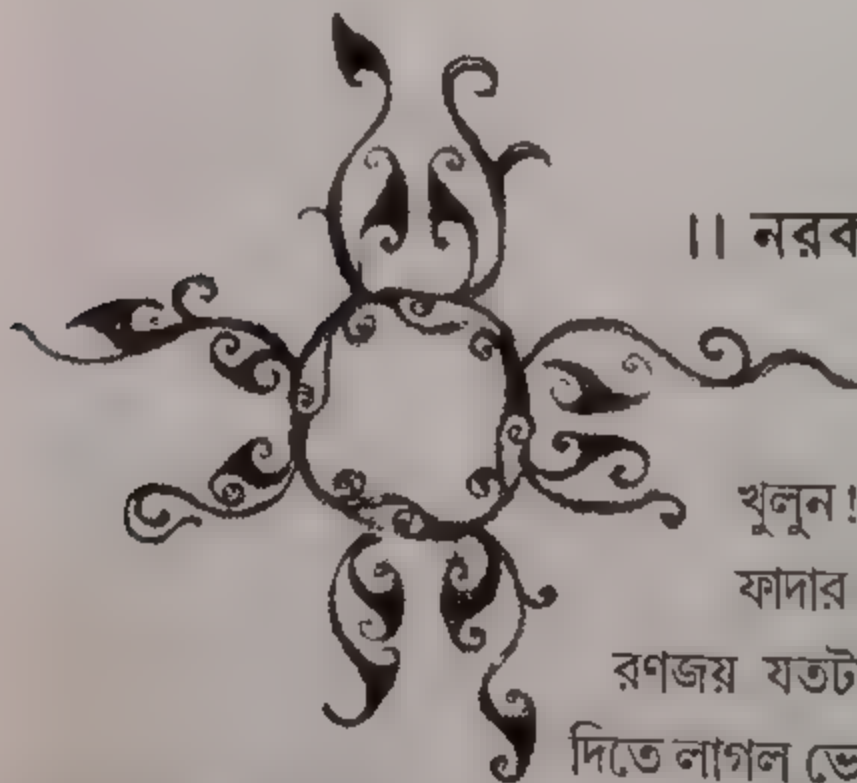 ।। নরক
খুলুন!
ফাদার
রণজয় যতট
দিতে লাগল ভে